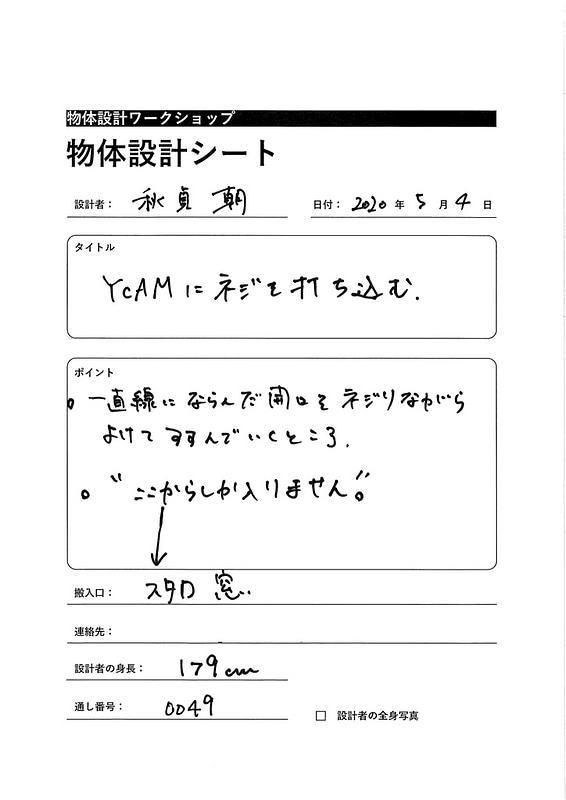 物体設計ワークショップ
物体設計シート
設計者： 秋貞 朝 日付： 2020 年 5 月 4 日
タイトル
YCAMにネジを打ち込む.
ポイント
。一直線にならんだ開口をネジりながら
よけてすすんでいくところ.
。"ここからしか入りません"。
搬入口： スタロ 窓.
連絡先：
設計者の身長： 179cm
通し番号： 0049
□ 設計者の全身写真